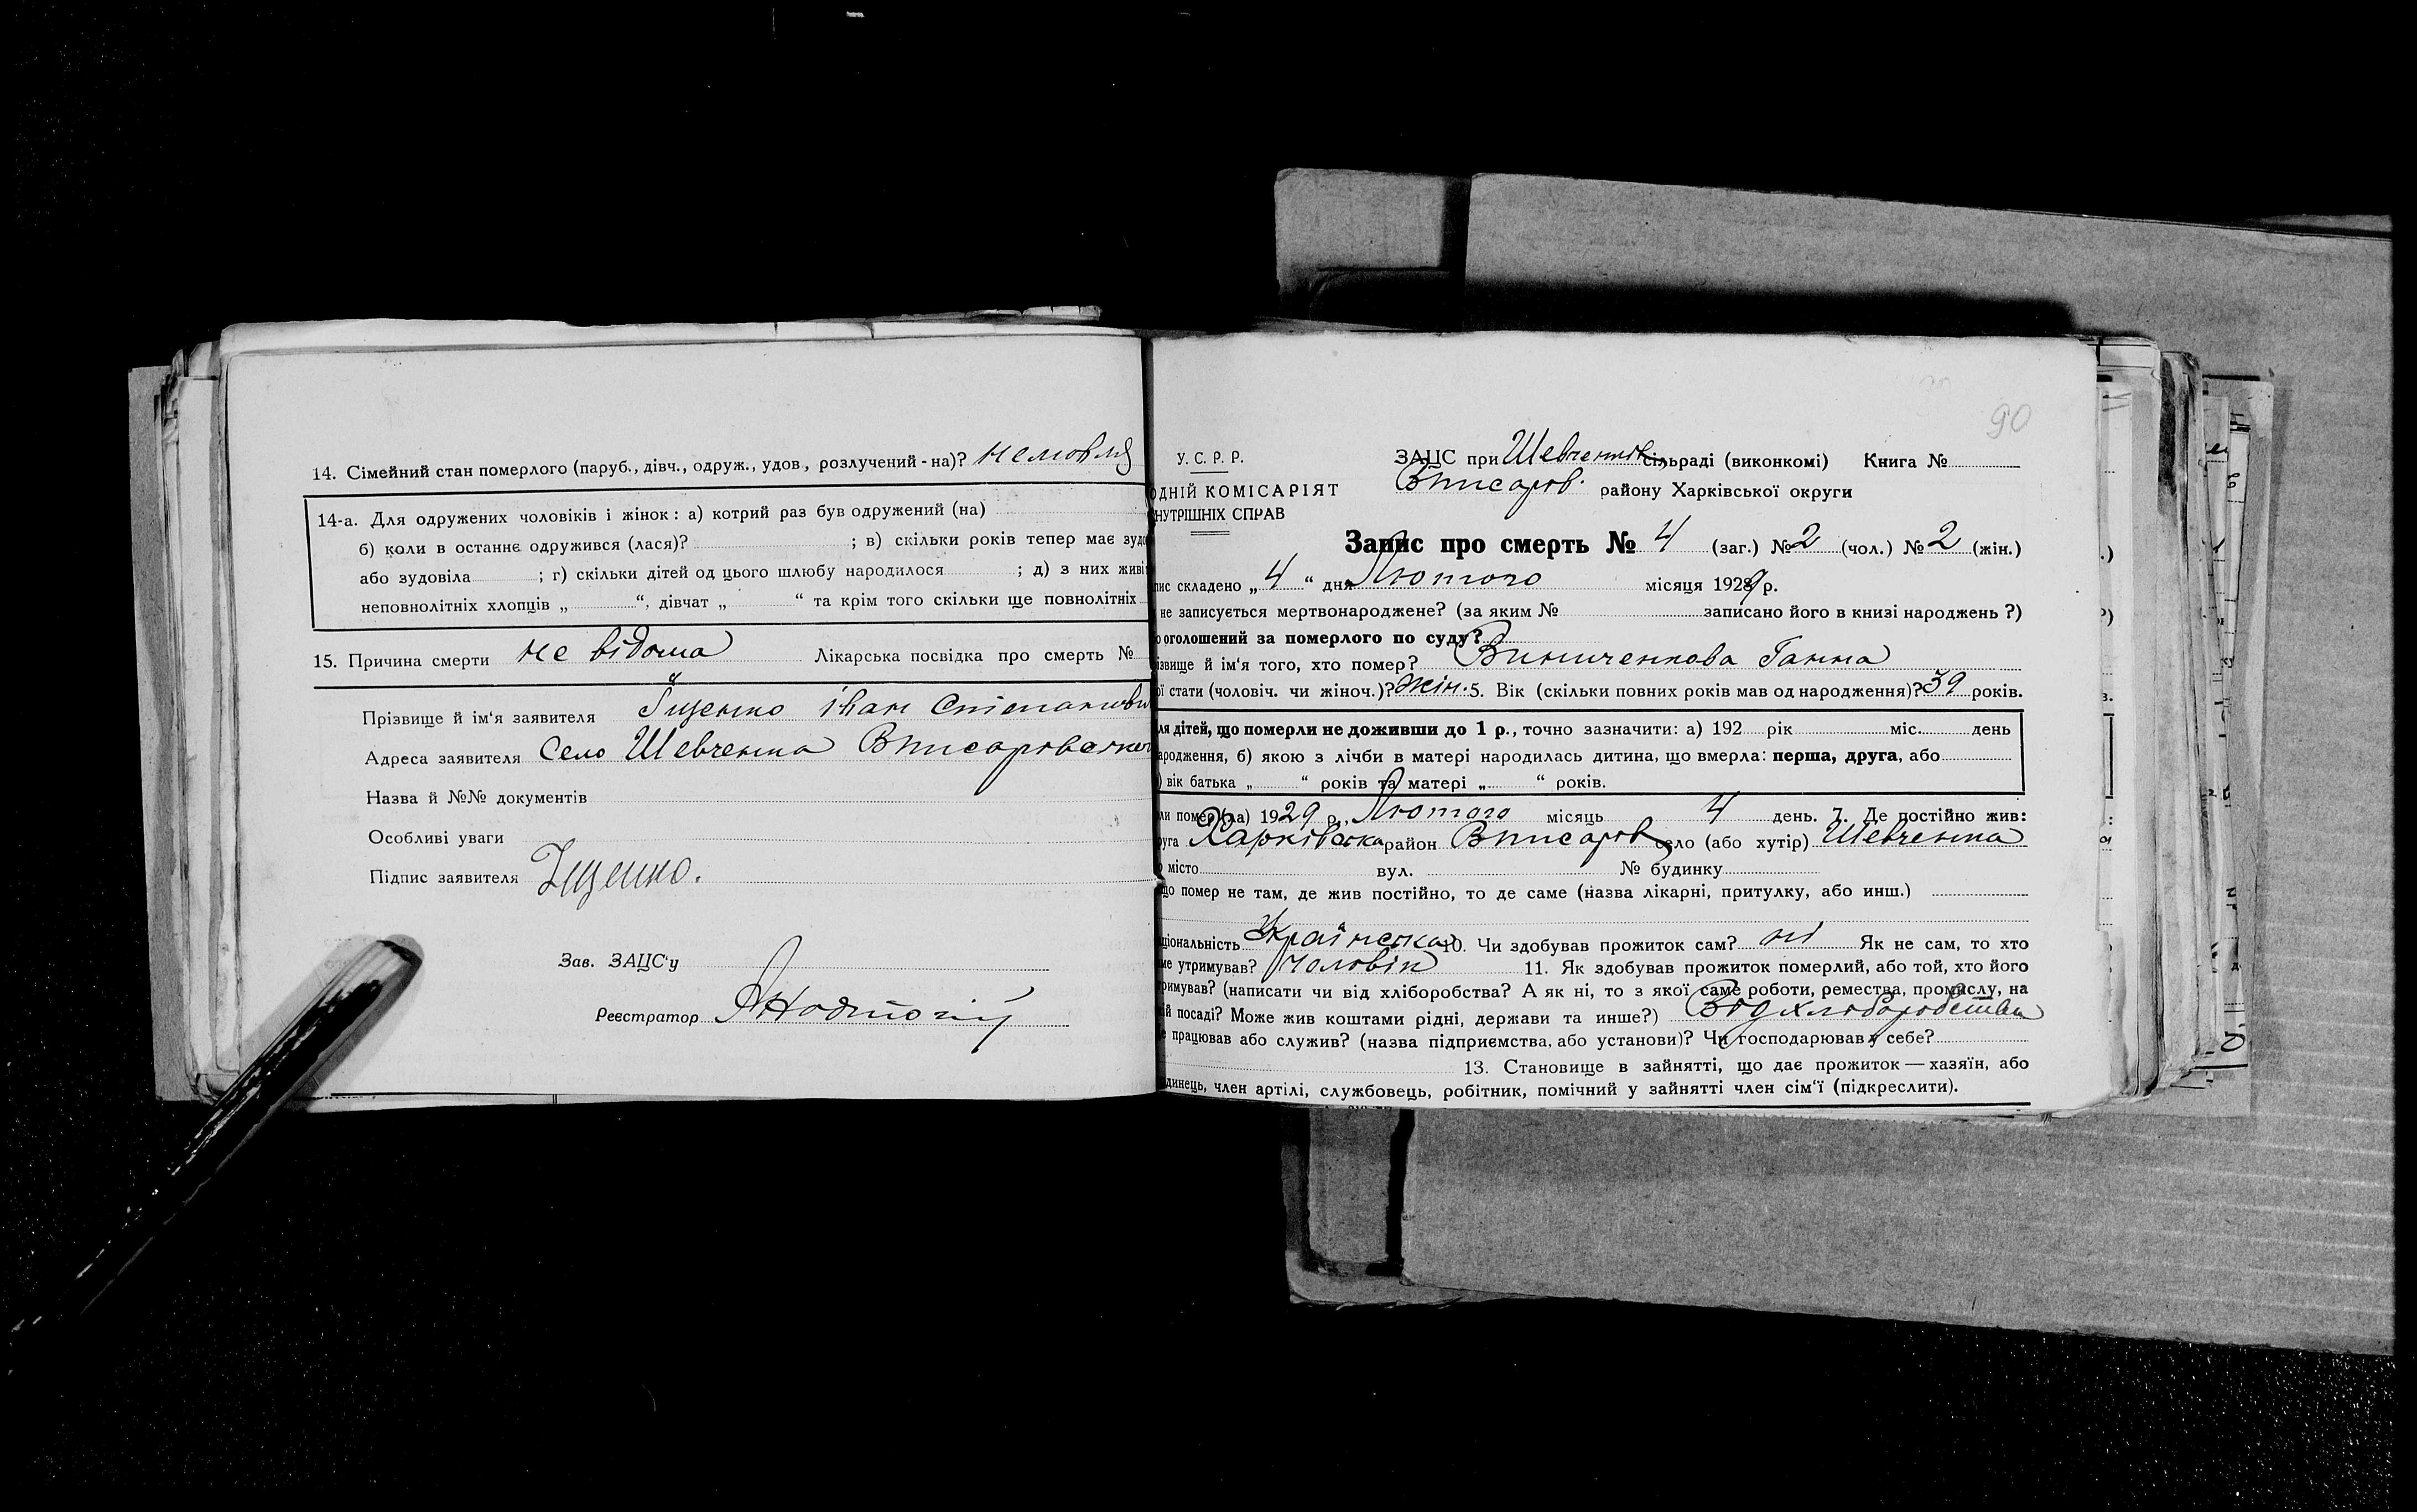 14. Сімейний стан померлого (паруб., дівч., одруж., удов., розлучений-на)? немовля
14-а. Для одружених чоловіків і жінок: а) котрий раз був одружений (на)
б) коли в останнє одружився (лася)? ; в) скільки років тепер має
або зудовіла ; г) скільки дітей од цього шлюбу народилося ; д) з них живі
неповнолітніх хлопців „ “, дівчат „ “ та крім того скільки ще повнолітніх
15. Причина смерти не відома Лікарська посвідка про смерть №
Прізвище й ім'я заявителя Іщенко Іван
Адреса заявителя Село Шевченка
Назва й №№ документів
Особливі уваги
Підпис заявителя Іщенко.
Зав. ЗАЦС'у
Реєстратор
90
У. С. Р. Р.
ОДНІЙ КОМІСАРІЯТ
НУТРІШНІХ СПРАВ
ЗАЦС при Шевченків сільраді (виконкомі) Книга №
району Харківської округи
Запис про смерть № 4 (заг.) № 2 (чол.) № 2 (жін.)
пис складено „4“ дня Лютого місяця 1929 р.
не записується мертвонароджене? (за яким № записано його в книзі народжень ?)
оголошений за померлого по суду?
ізвище й ім'я того, хто помер? Винниченкова Ганна
ої стати (чоловіч. чи жіноч.)? жін. 5. Вік (скільки повних років мав од народження)? 39 років.
ля дітей, що померли не доживши до 1 р., точно зазначити: а) 192 рік міс. день
ародження, б) якою з лічби в матері народилась дитина, що вмерла: перша, друга, або
) вік батька „ “ років та матері „ “ років.
ли помер(ла) 1929 р., Лютого місяць 4 день. 7. Де постійно жив:
руга Харківська район село (або хутір) Шевченка
о місто вул. № будинку
що помер не там, де жив постійно, то де саме (назва лікарні, притулку, або инш.)
ціональність Українська 10. Чи здобував прожиток сам? ні Як не сам, то хто
ме утримував? чоловік 11. Як здобував прожиток померлий, або той, хто його
римував? (написати чи від хліборобства? А як ні, то з якої саме роботи, ремества, промислу, на
ій посаді? Може жив коштами рідні, держави та инше?) Від хліборобства
е працював або служив? (назва підприємства, або установи)? Чи господарював у себе?
13. Становище в зайнятті, що дає прожиток — хазяїн, або
динець, член артілі, службовець, робітник, помічний у зайнятті член сім'ї (підкреслити).